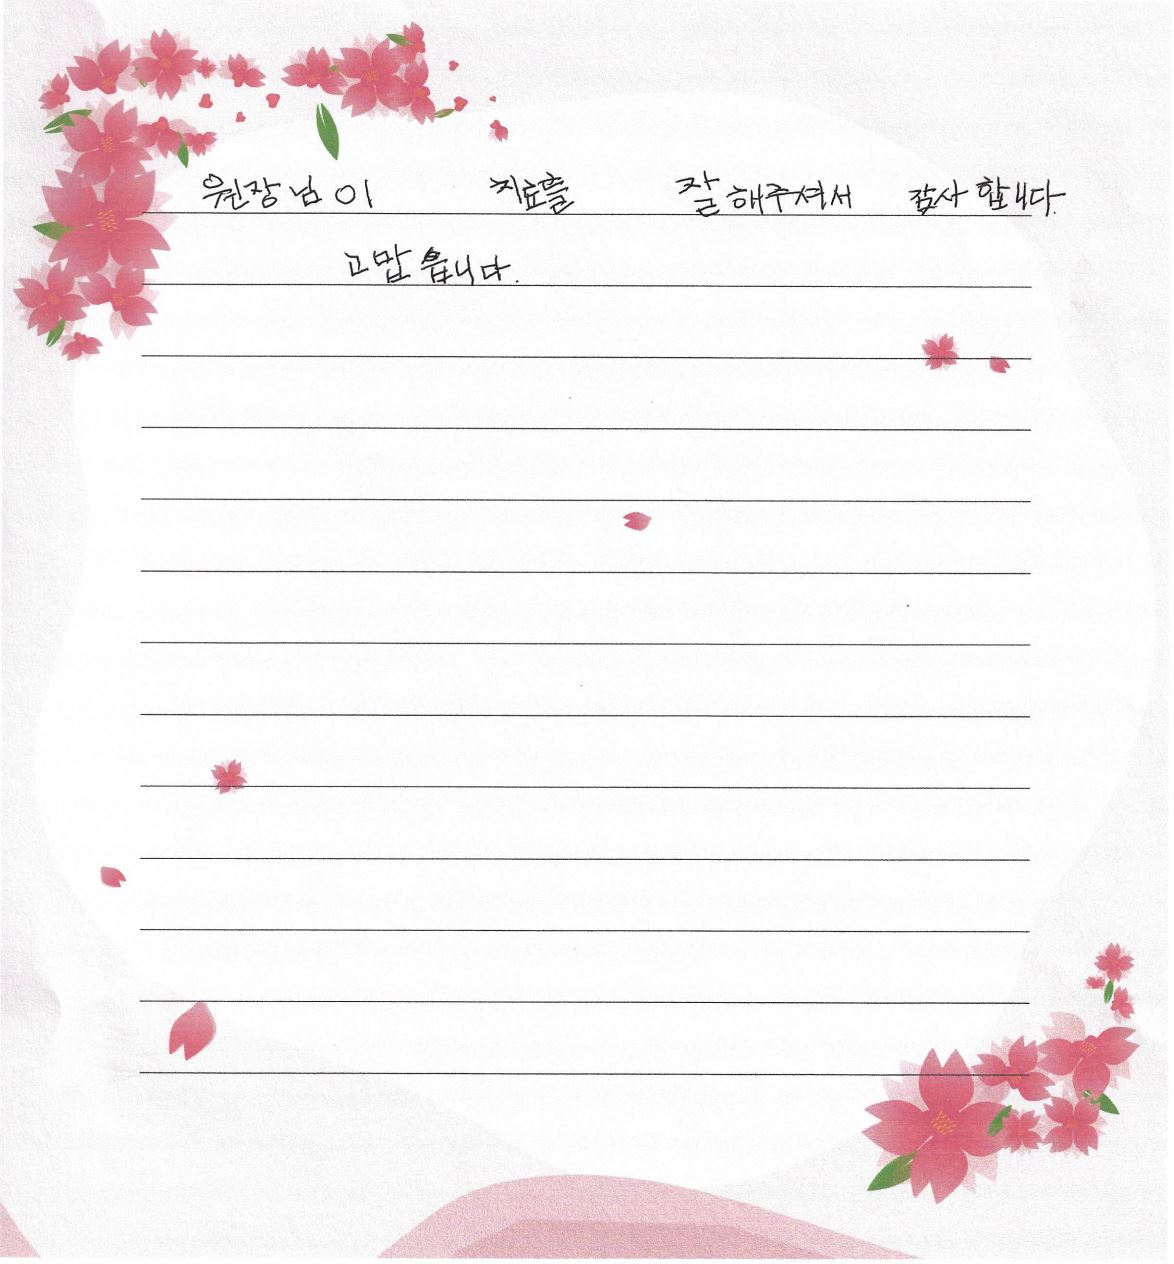 원장님이 치료를 잘해주셔서 감사합니다.
고맙습니다.